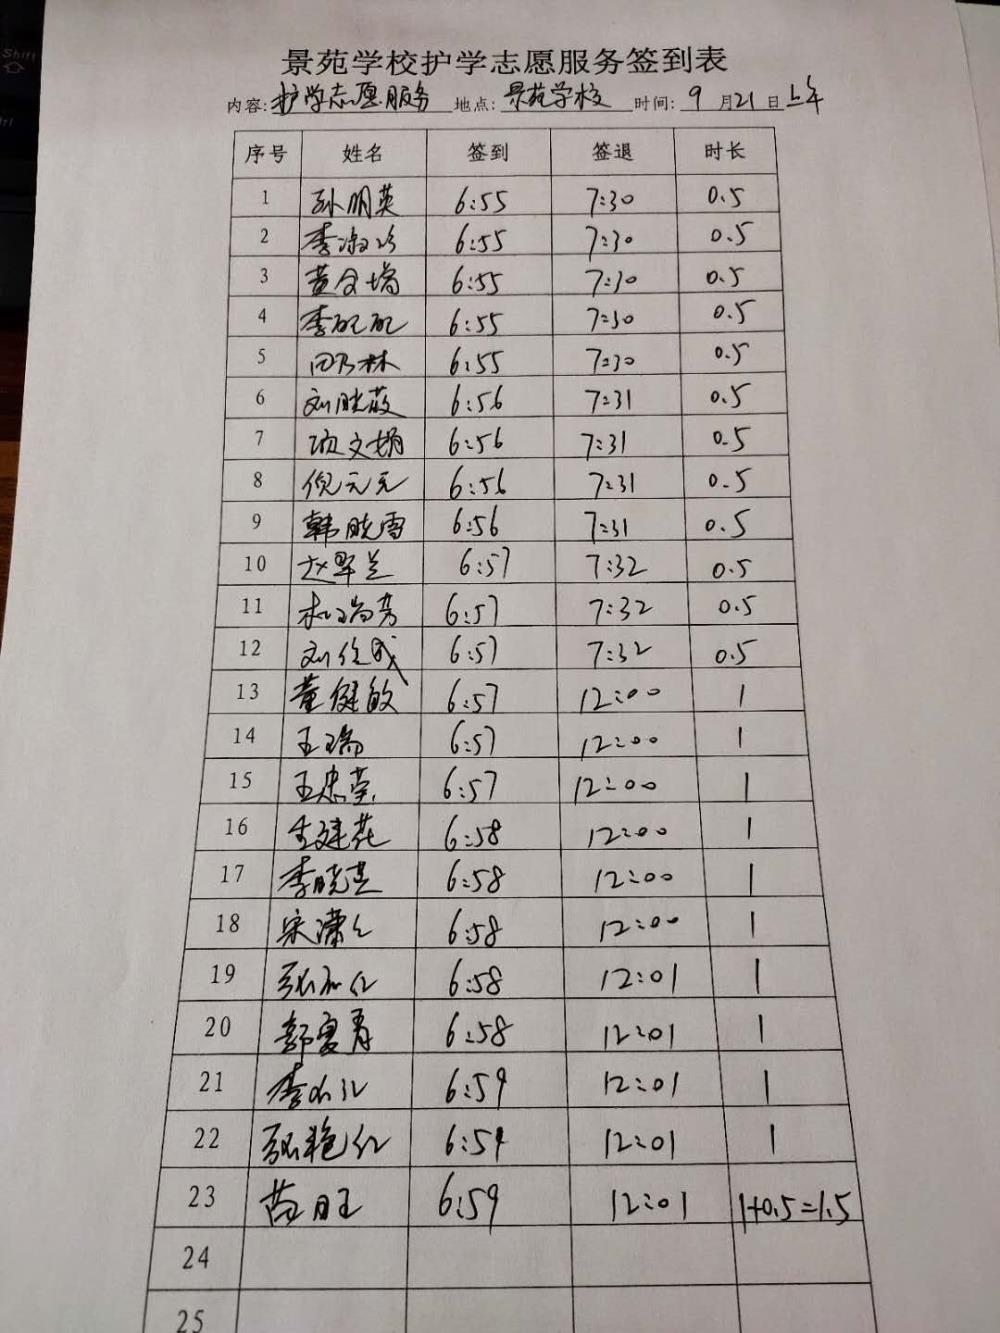 景苑学校护学志愿服务签到表
内容:护学志愿服务 地点:景苑学校 时间:9月21日上午
序号 姓名 签到 签退 时长
1 孙明英 6:55 7:30 0.5
2 李淑珍 6:55 7:30 0.5
3 董 6:55 7:30 0.5
4 李 6:55 7:30 0.5
5 田乃林 6:55 7:30 0.5
6 刘晓薇 6:56 7:31 0.5
7 项文娟 6:56 7:31 0.5
8 倪元元 6:56 7:31 0.5
9 韩晓雪 6:56 7:31 0.5
10 赵翠兰 6:57 7:32 0.5
11 杜瑞芳 6:57 7:32 0.5
12 刘俊成 6:57 7:32 0.5
13 董健敏 6:57 12:00 1
14 王瑞 6:57 12:00 1
15 王忠荣 6:57 12:00 1
16 李建花 6:58 12:00 1
17 李晓莲 6:58 12:00 1
18 宋潇 6:58 12:00 1
19 张红 6:58 12:01 1
20 郭夏青 6:58 12:01 1
21 李红 6:59 12:01 1
22 张艳红 6:59 12:01 1
23 苗旺 6:59 12:01 1+0.5=1.5
24
25